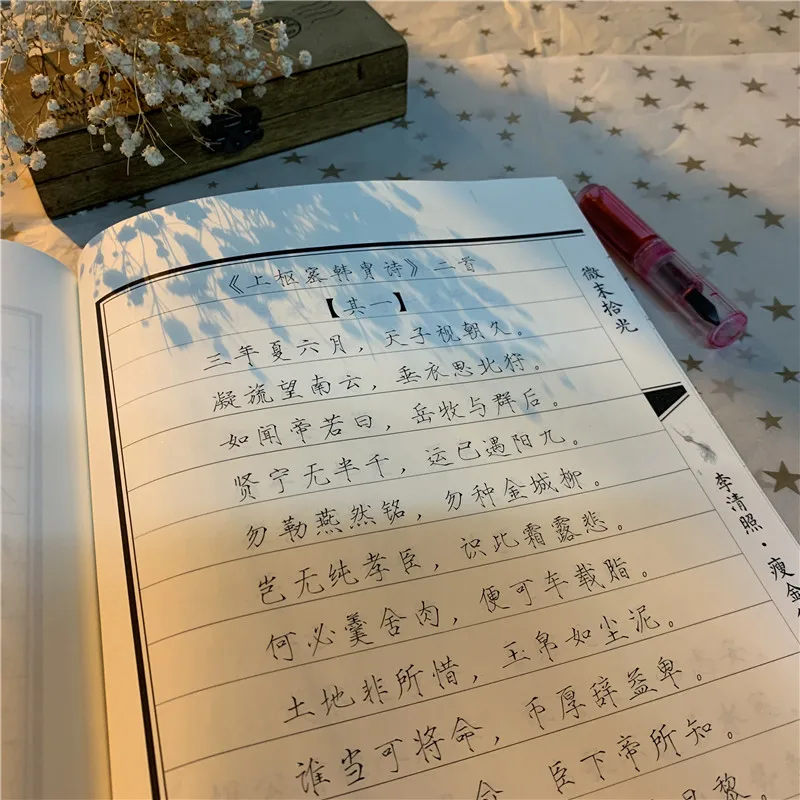 《上枢密韩肖胄诗》二首
【其一】
三年夏六月，天子视朝久。
凝旒望南云，垂衣思北狩。
如闻帝若曰，岳牧与群后。
贤宁无半千，运已遇阳九。
勿勒燕然铭，勿种金城柳。
岂无纯孝臣，识此霜露悲。
何必羹舍肉，便可车载脂。
土地非所惜，玉帛如尘泥。
谁当可将命，币厚辞益卑。
臣下帝所知。
微末拾光
李清照·瘦金